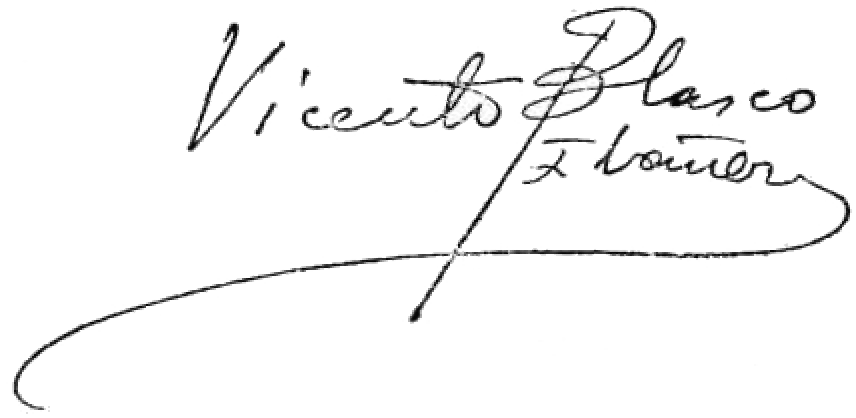 Vicente Blasco
Ibáñez